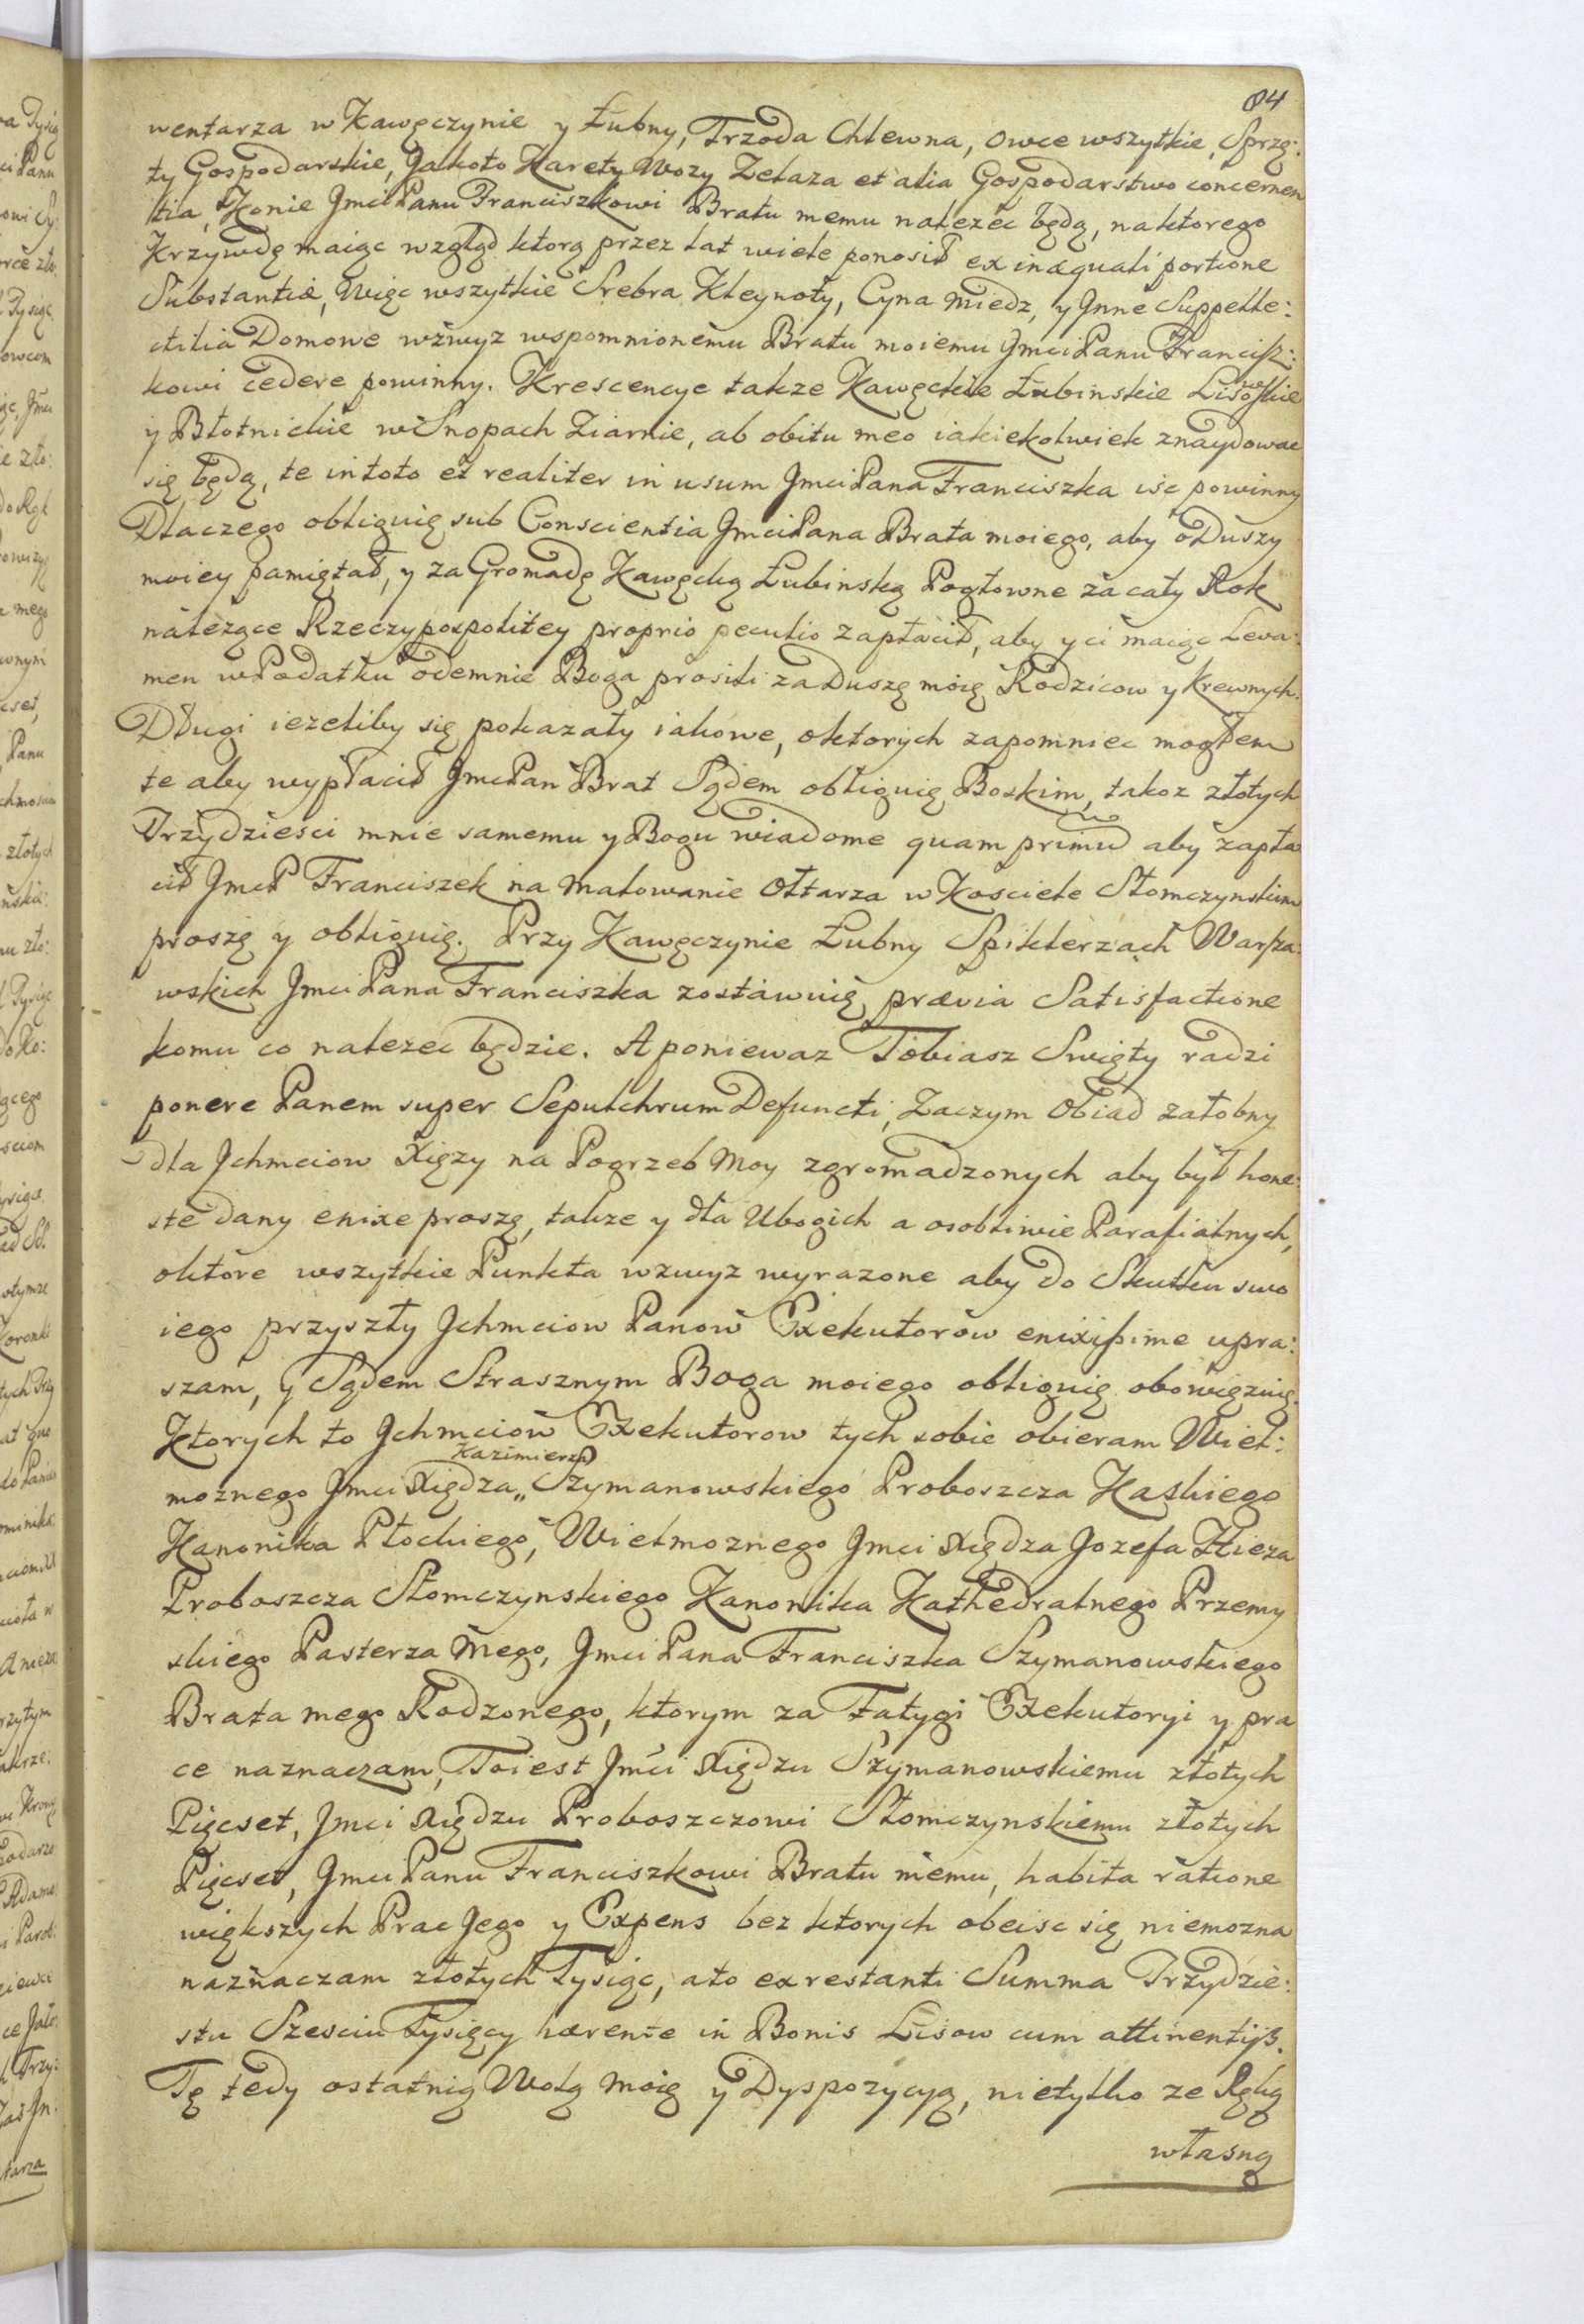 84
wentarza w Kawęczynie y Łubny, Trzoda Chlewna, owce wszytkie, Sprzę:
ty Gospodarskie, Jakoto Karety Wozy Zelaza et alia Gospodarstwo concernen
tia, Konie Jmci Panu Franciszkowi Bratu memu nalezec będą, na ktorego
Krzywdę maiąc wzgląd ktorą przez lat wiele ponosił ex inæquali portione
Substantiæ, Więc wszytkie Srebra Kleynoty, Cyna Miedz, y Jnne Suppelle:
ctilia Domowe wzwyz wspomnionemu Bratu moiemu Jmci Panu Francisz:
kowi cedere powinny. Krescencye takze Kawęckie Łubinskie Lisowskie
y Błotnickie w Snopach Ziarnie, ab obitu meo iakiekolwiek znaydowac
się będą, te in toto et realiter in usum Jmci Pana Franciszka isc powinny
Dlaczego obliguię sub Conscientia Jmci Pana Brata moiego, aby o Duszy
moiey pamiętał, y za Gromadę Kawęcką Łubinską Pogłowne za cały Rok
nalezące Rzeczypospolitey proprio peculio zapłacił, aby y ci maiąc Leva:
men w Podatku odemnie Boga prosili za Duszę moię Rodzicow y Krewnych.
Długi iezeliby się pokazały iakowe, o ktorych zapomniec mogłem
te aby wypłacił Jmc Pan Brat Sądem obliguię Boskim, takoz złotych
Trzydziesci mnie samemu y Bogu wiadome quam primum aby zapła
cił Jmc P Franciszek na malowanie Ołtarza w Kosciele Słomczynskim
proszę y obliguię. Przy Kawęczynie Łubny Spiklerzach Warsza:
wskich Jmci Pana Franciszka zostawuię, prævia Satisfactione
komu co nalezec będzie. A poniewaz Tobiasz Swięty radzi
ponere Panem super Sepulchrum Defuncti, Zaczym Obiad załobny
dla Jchmciow Xięzy na Pogrzeb Moy zgromadzonych aby był hone:
ste dany enixe proszę, takze y dla Ubogich a osobliwie Parafialnych,
o ktore wszytkie Punkta wzwyz wyrazone aby do Skutku swo
iego przyszły Jchmciow Panow Exekutorow enixissime upra:
szam, y Sądem Strasznym Boga moiego obliguię obowięzuię.
Ktorych to Jchmciow Exekutorow tych sobie obieram Wiel:
Kazimierza
moznego Jmci Xiędza „ Szymanowskiego Proboszcza Kaskiego
Kanonika Płockiego, Wielmoznego Jmci Xiędza Jozefa Hieza
Proboszcza Słomczynskiego Kanonika Kathedralnego Przemy
skiego Pasterza Mego, Jmci Pana Franciszka Szymanowskiego
Brata mego Rodzonego, ktorym za Fatygi Exekutoryi y pra
ce naznaczam, To iest Jmci Xiędzu Szymanowskiemu złotych
Pięcset, Jmci Xiędzu Proboszczowi Słomczynskiemu złotych
Pięcset, Jmci Panu Franciszkowi Bratu memu, habita ratione
większych Prac Jego y Expens bez ktorych obeisc się niemozna
naznaczam złotych Tysiąc, a to ex restanti Summa Trzydzie:
stu Szesciu Tysięcy hærente in Bonis Lisow cum attinentijs.
Tę tedy ostatnią Wolą Moię y Dyspozycyą, nietylko ze Ręką
własną